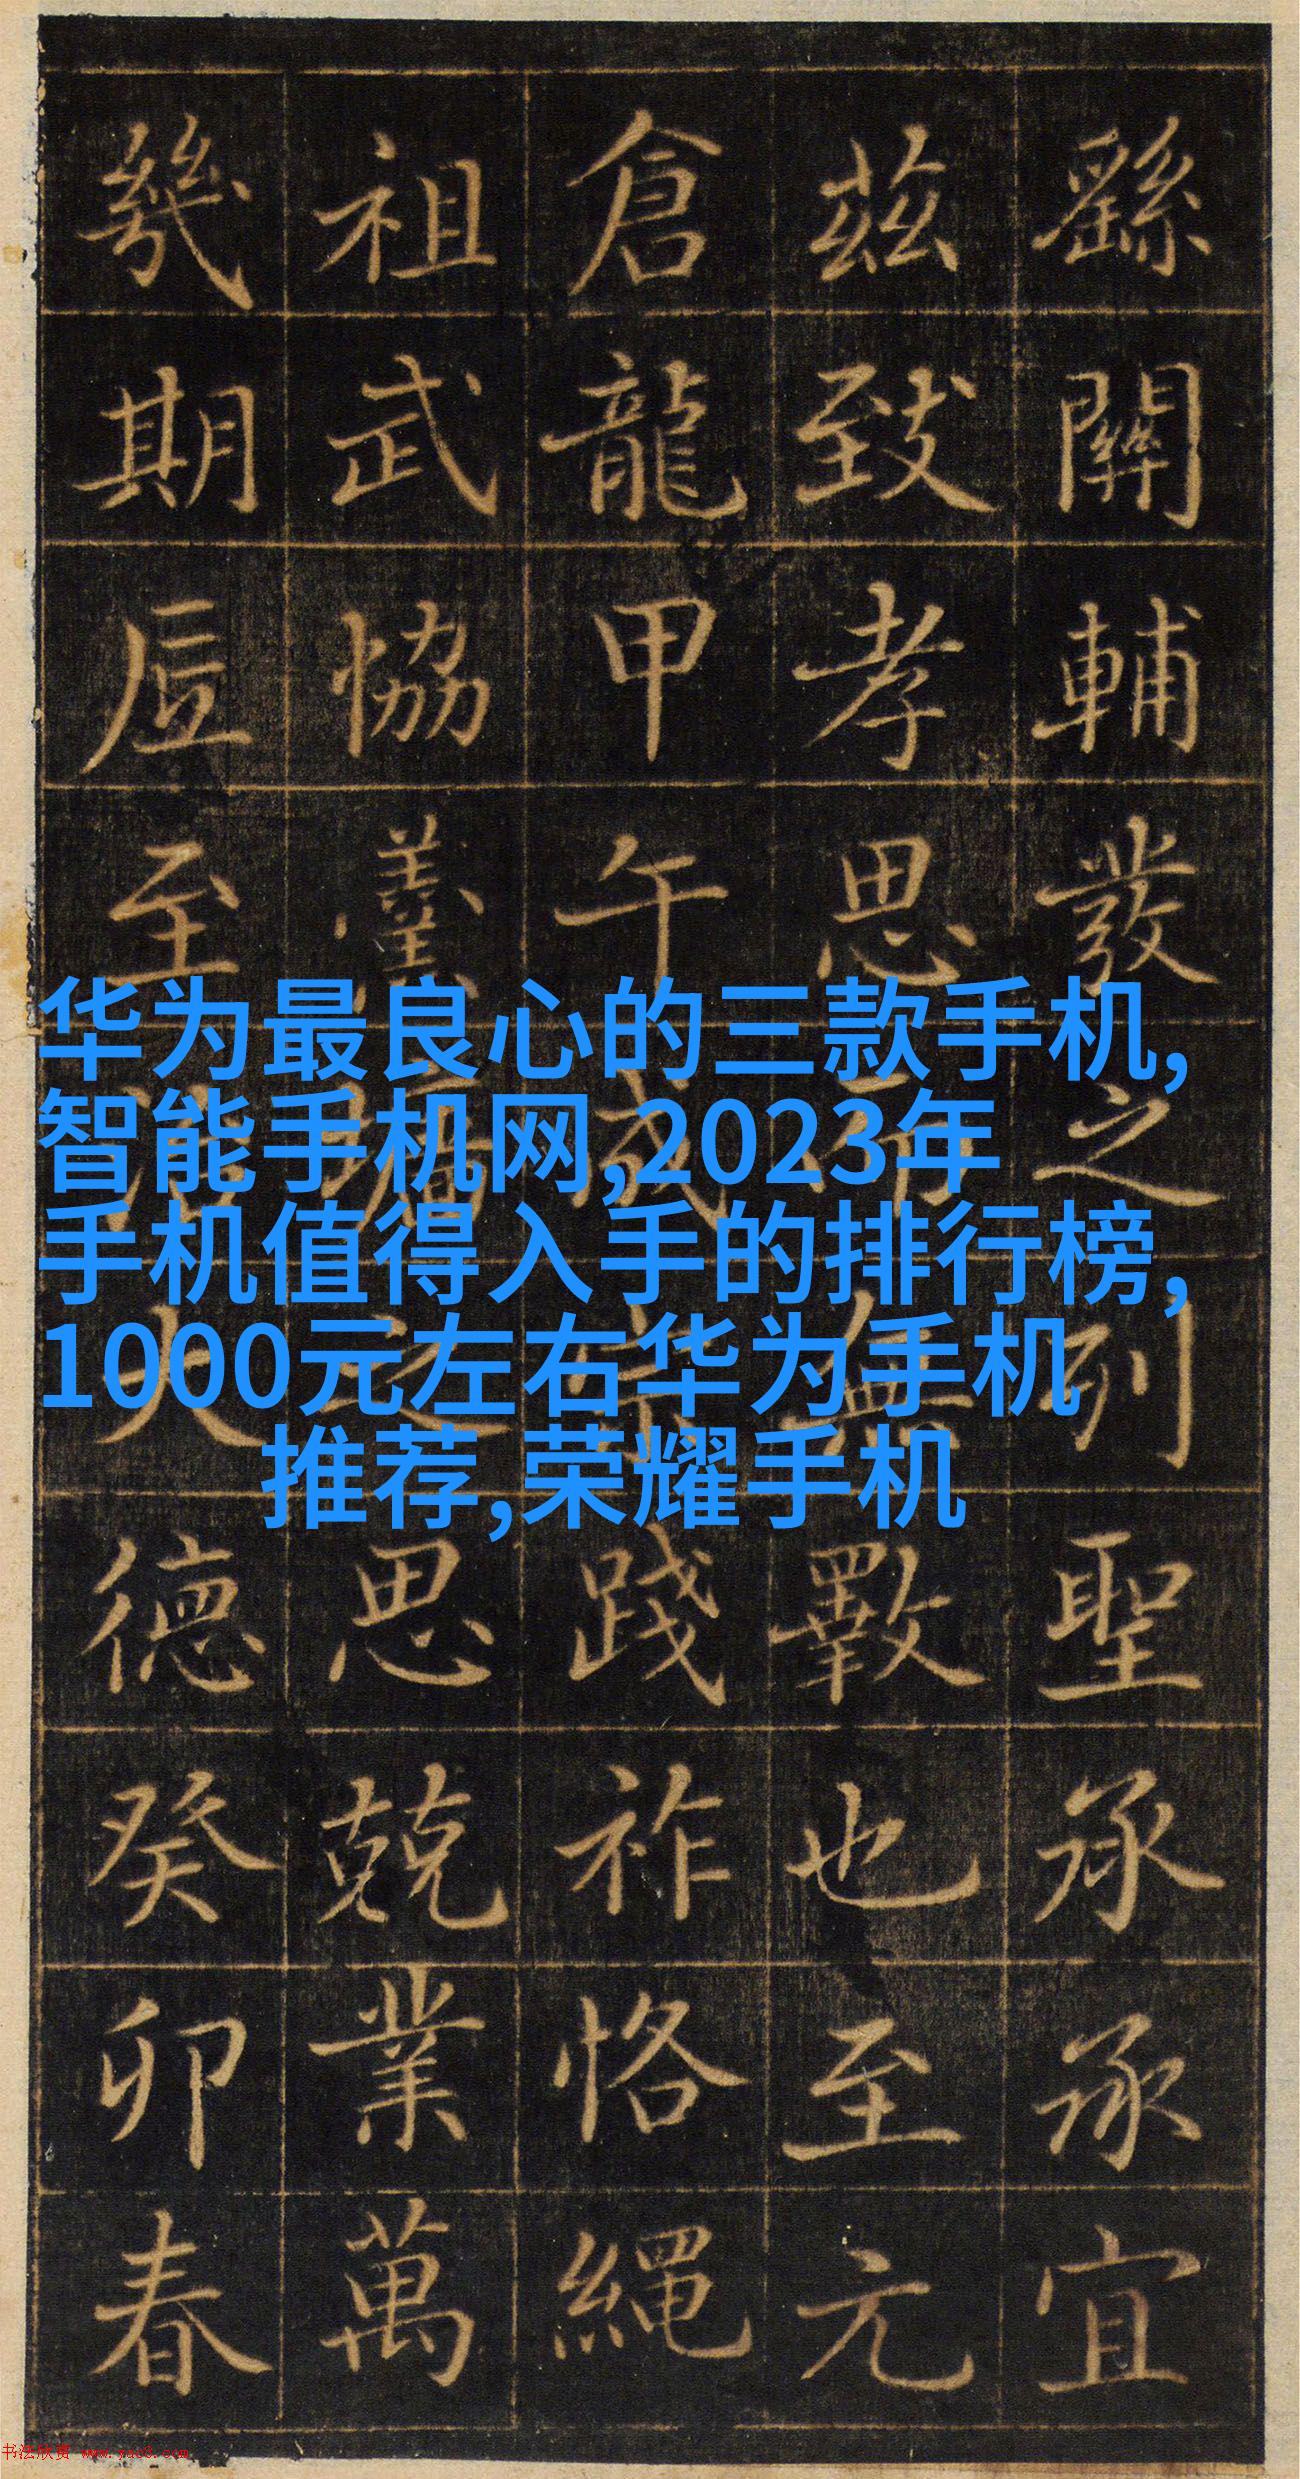 繇關輔發之列聖承承宜
茲致孝思無斁也至元
倉龍甲午成踐祚恪繩
祖武協羹牆之思兢業萬
幾期底至大德癸卯春
华为最良心的三款手机,
智能手机网,2023年
手机值得入手的排行榜,
1000元左右华为手机
推荐,荣耀手机
书法欣赏 www.yac8.com